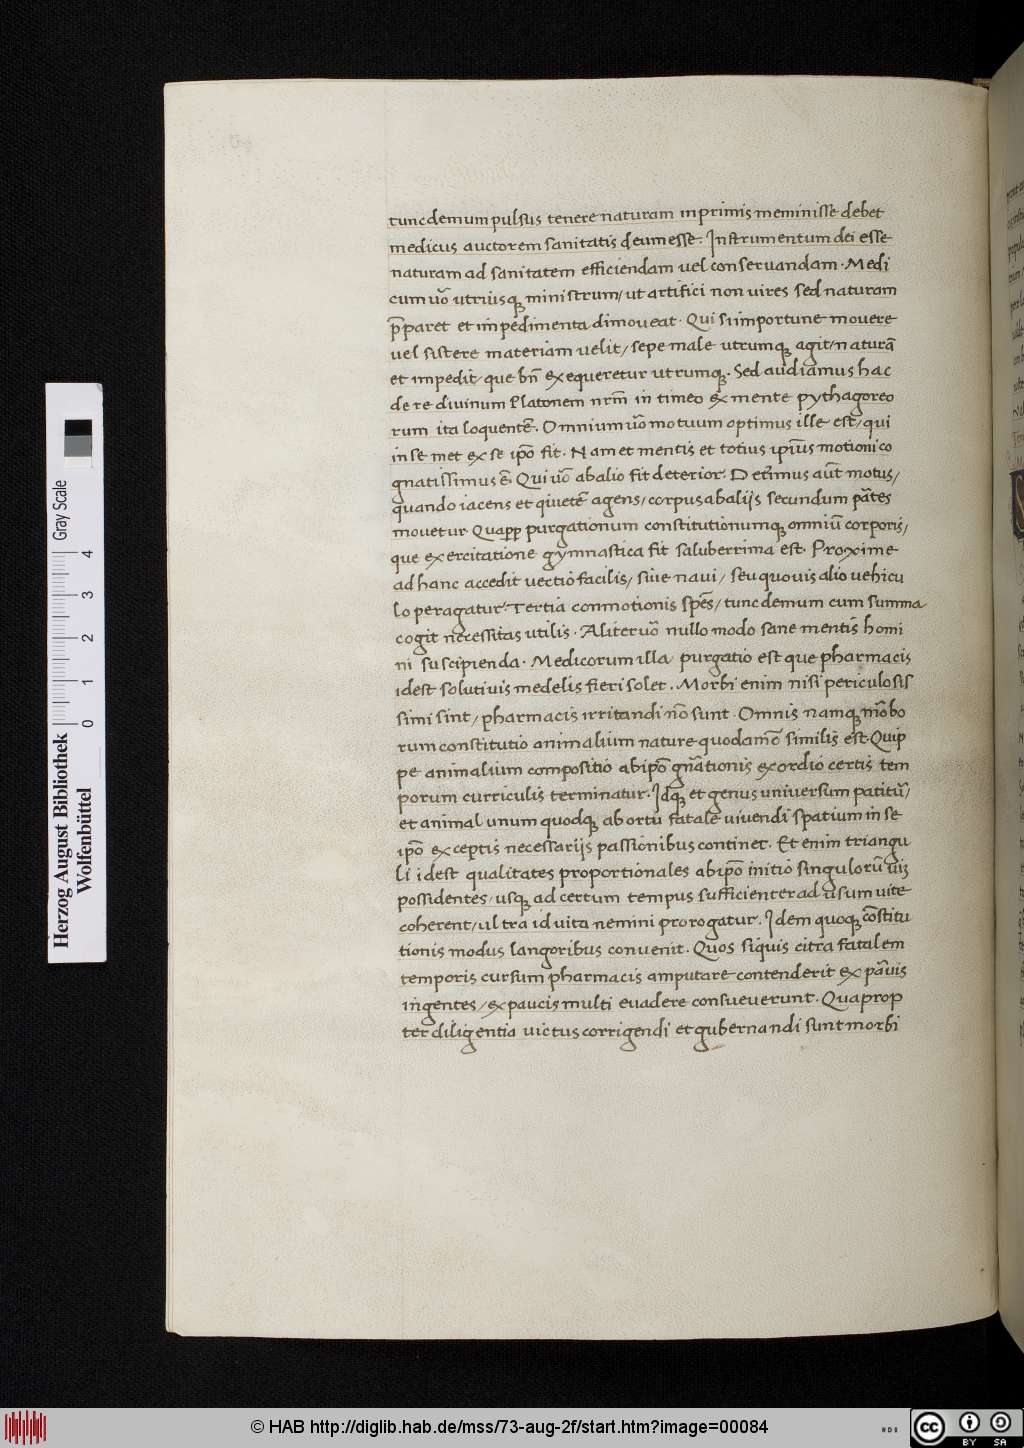 tunc demum pulsus tenere naturam in primis meminisse debet
medicus auctorem sanitatis deum esse. Instrumentum dei esse
naturam ad sanitatem efficiendam vel conservandam. Medi
cum uõ utriusq ministrum/ ut artifici non vires sed naturam
p̃paret et impedimenta dimoveat. Qui si importune movere
vel sistere materiam velit/ sepe male utrumq agit/ naturã
et impedit/ que bñ exequeretur utrumq. Sed audiamus hac
de re divinum Platonem nr̃m in timeo ex mente pythagoreo
rum ita loquentẽ. Omnium uõ motuum optimus ille est/ qui
in se met ex se ip̃o fit. Nam et mentis et totius ip̃ius motioni co
gnatissimus ẽ. Qui uõ ab alio fit deterior. Deterimus aũt motus/
quando iacens et quietẽ agens/ corpus ab aliis secundum pãtes
movetur. Quapp purgationum constitutionumq omniũ corporis/
que exercitatione gymnastica fit saluberrima est. Proxime
ad hanc accedit vectio facilis/ sive navi/ seu quovis alio vehicu
lo peragatur. Tertia conmotionis spẽs/ tunc demum cum summa
cogit necessitas utilis. Aliter uõ nullo modo sane mentis homi
ni suscipienda. Medicorum illa purgatio est que pharmacis
idest solutivis medelis fieri solet. Morbi enim nisi periculosis
simi sint/ pharmacis irritandi nõ sunt. Omnis namq mõbo
rum constitutio animalium nature quodamõ similis est. Quip
pe animalium compositio ab ip̃o gñationis exordio certis tem
porum curriculis terminatur. Idq et genus universum patitũ/
et animal unum quodq ab ortu fatale vivendi spatium in se
ip̃o exceptis necessariis passionibus continet. Et enim triangu
li idest qualitates proportionales ab ip̃o initio singulorũ vis
possidentes/ usq ad certum tempus sufficienter ad usum vite
coherent/ ultra id vita nemini prorogatur. Idem quoq cõstitu
tionis modus langoribus convenit. Quos siquis citra fatalem
temporis cursum pharmacis amputare contenderit ex pãvis
ingentes/ ex paucis multi evadere consueverunt. Quaprop
ter diligentia victus corrigendi et gubernandi sunt morbi
Gray Scale
0 1 2 3 4
Herzog August Bibliothek
Wolfenbüttel
HAB
© HAB http://diglib.hab.de/mss/73-aug-2f/start.htm?image=00084
cc BY SA